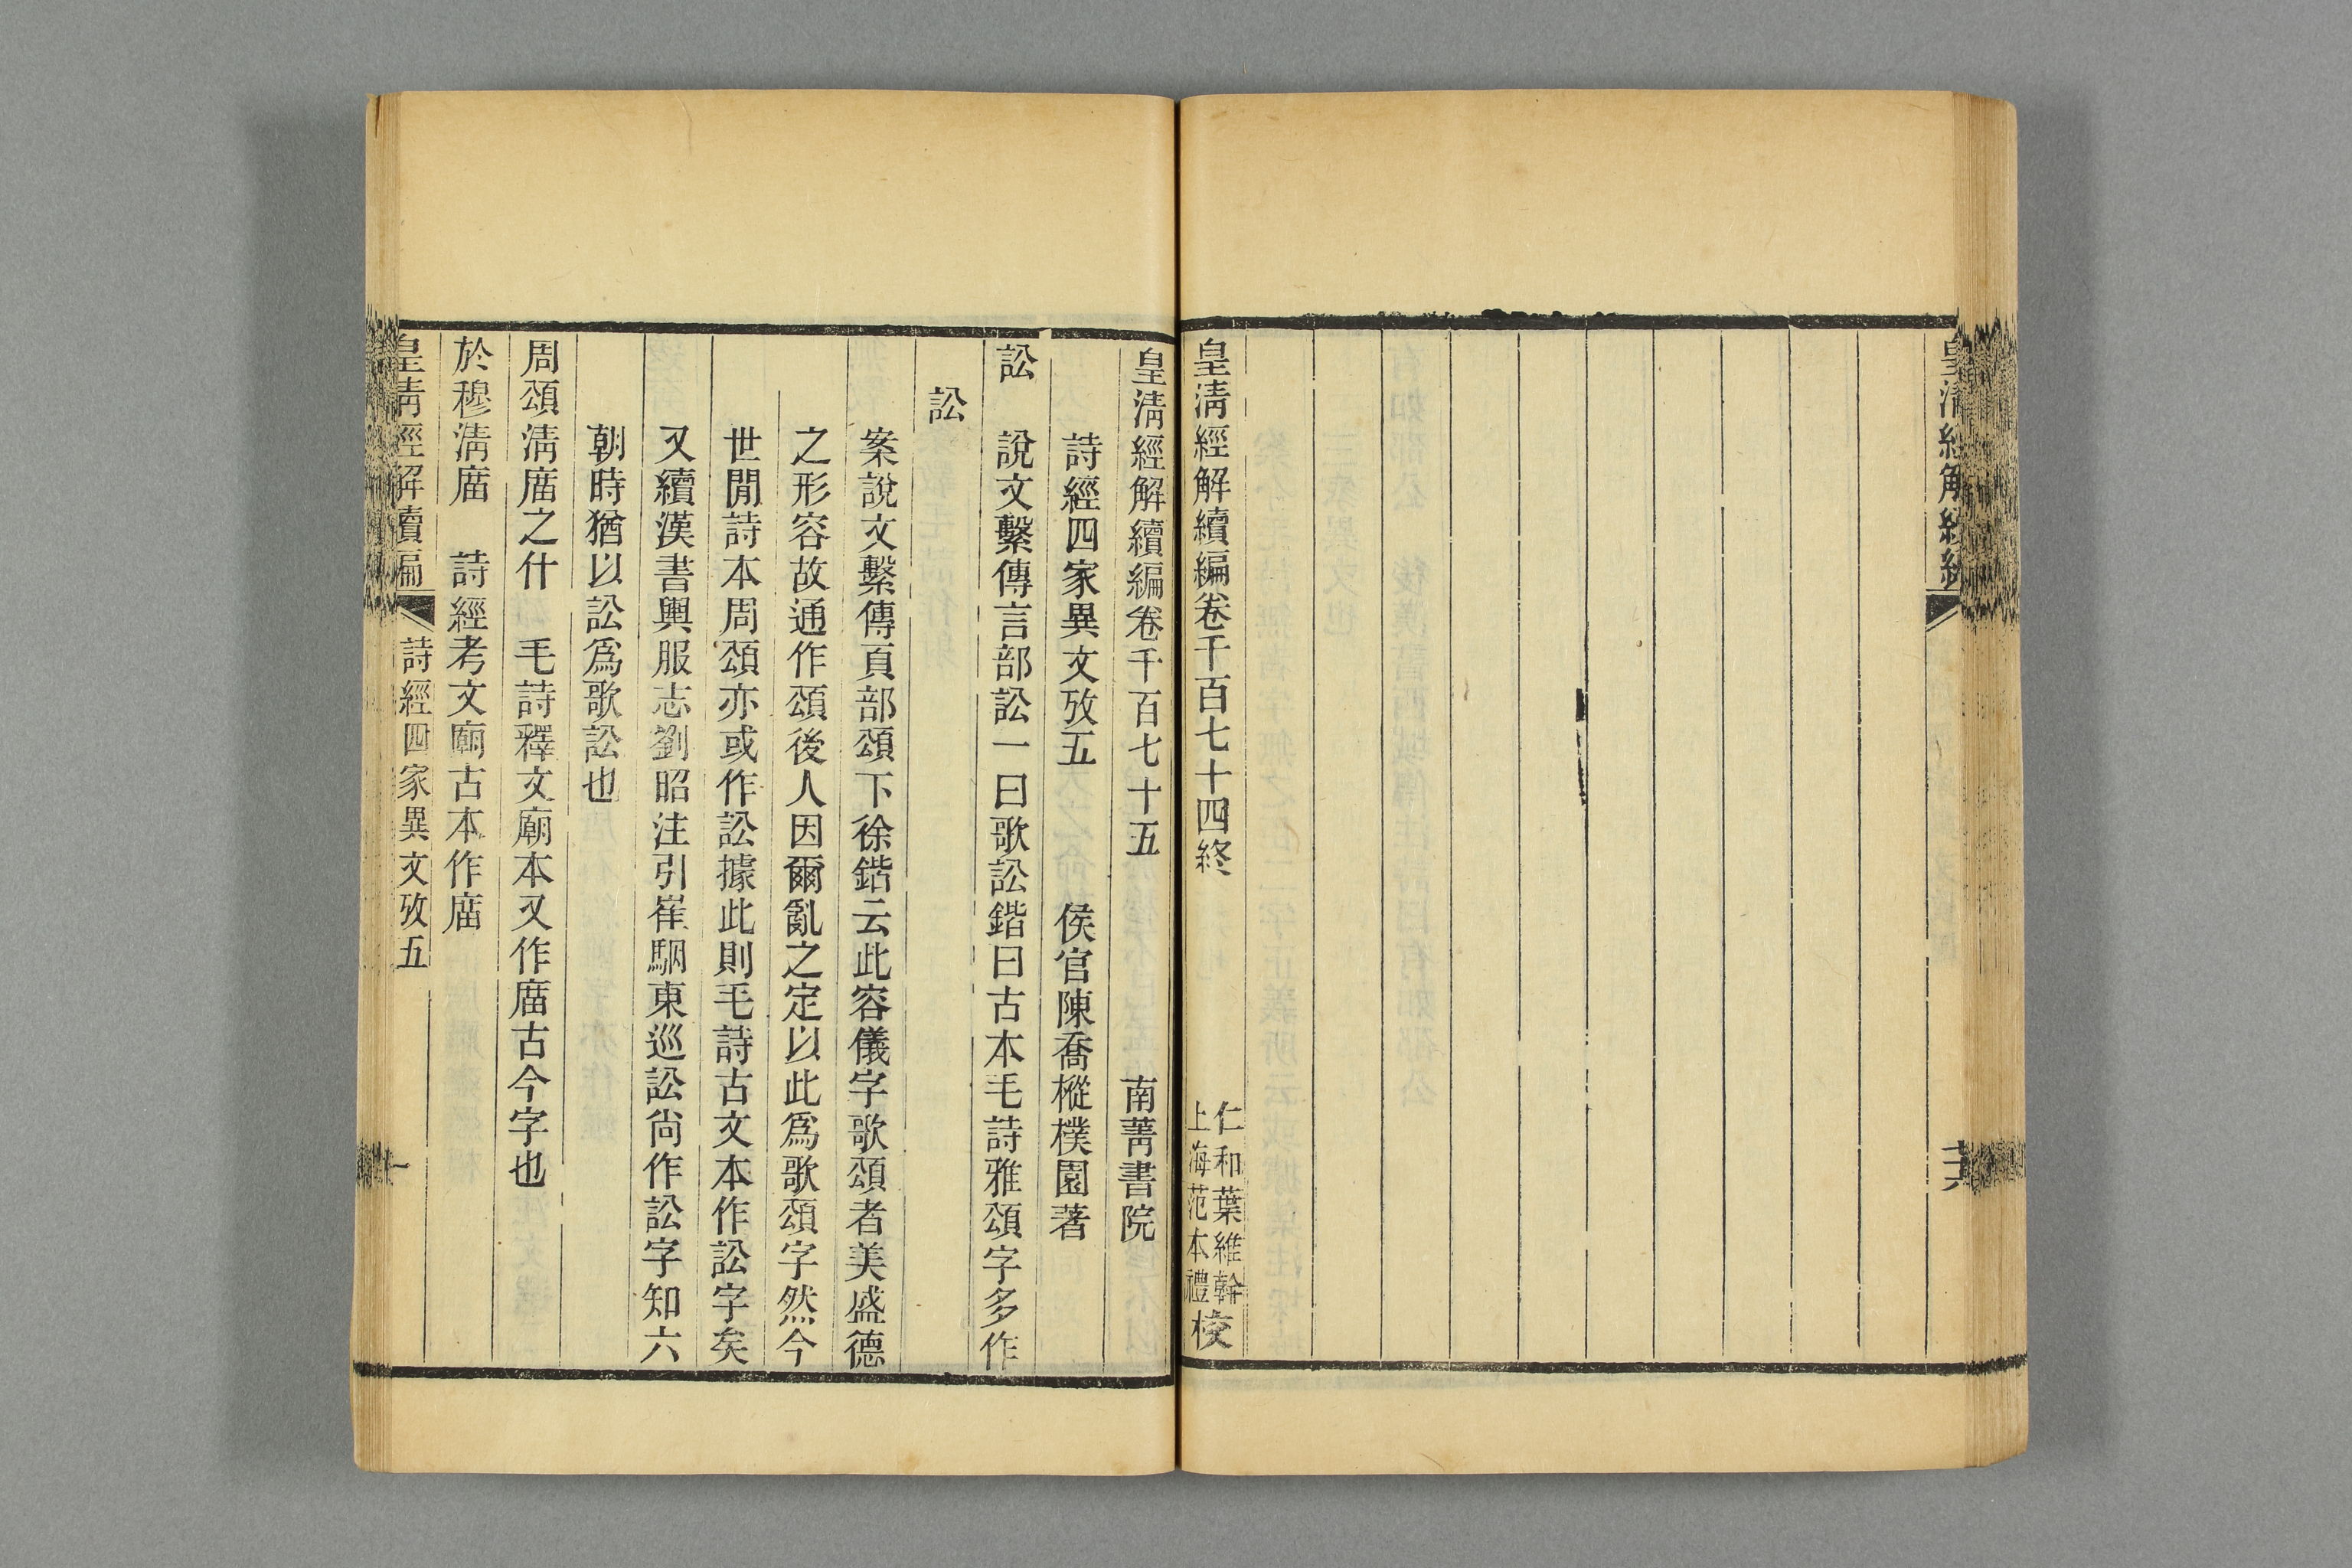 皇清經解續編卷千百七十四終
仁和葉維幹
上海范本禮
校
皇清經解續編卷千百七十五 南菁書院
詩經四家異文攷五 侯官陳喬樅樸園著
訟 說文繫傳言部訟一曰歌訟鍇曰古本毛詩雅頌字多作
訟
案說文繫傳頁部頌下徐鍇云此容儀字歌頌者美盛德
之形容故通作頌後人因爾亂之定以此爲歌頌字然今
世閒詩本周頌亦或作訟據此則毛詩古文本作訟字矣
又續漢書輿服志劉昭注引崔駰東巡訟尙作訟字知六
朝時猶以訟爲歌訟也
周頌淸庿之什 毛詩釋文廟本又作庿古今字也
於穆淸庿 詩經考文廟古本作庿
皇淸經解續編 詩經四家異文攷五 一